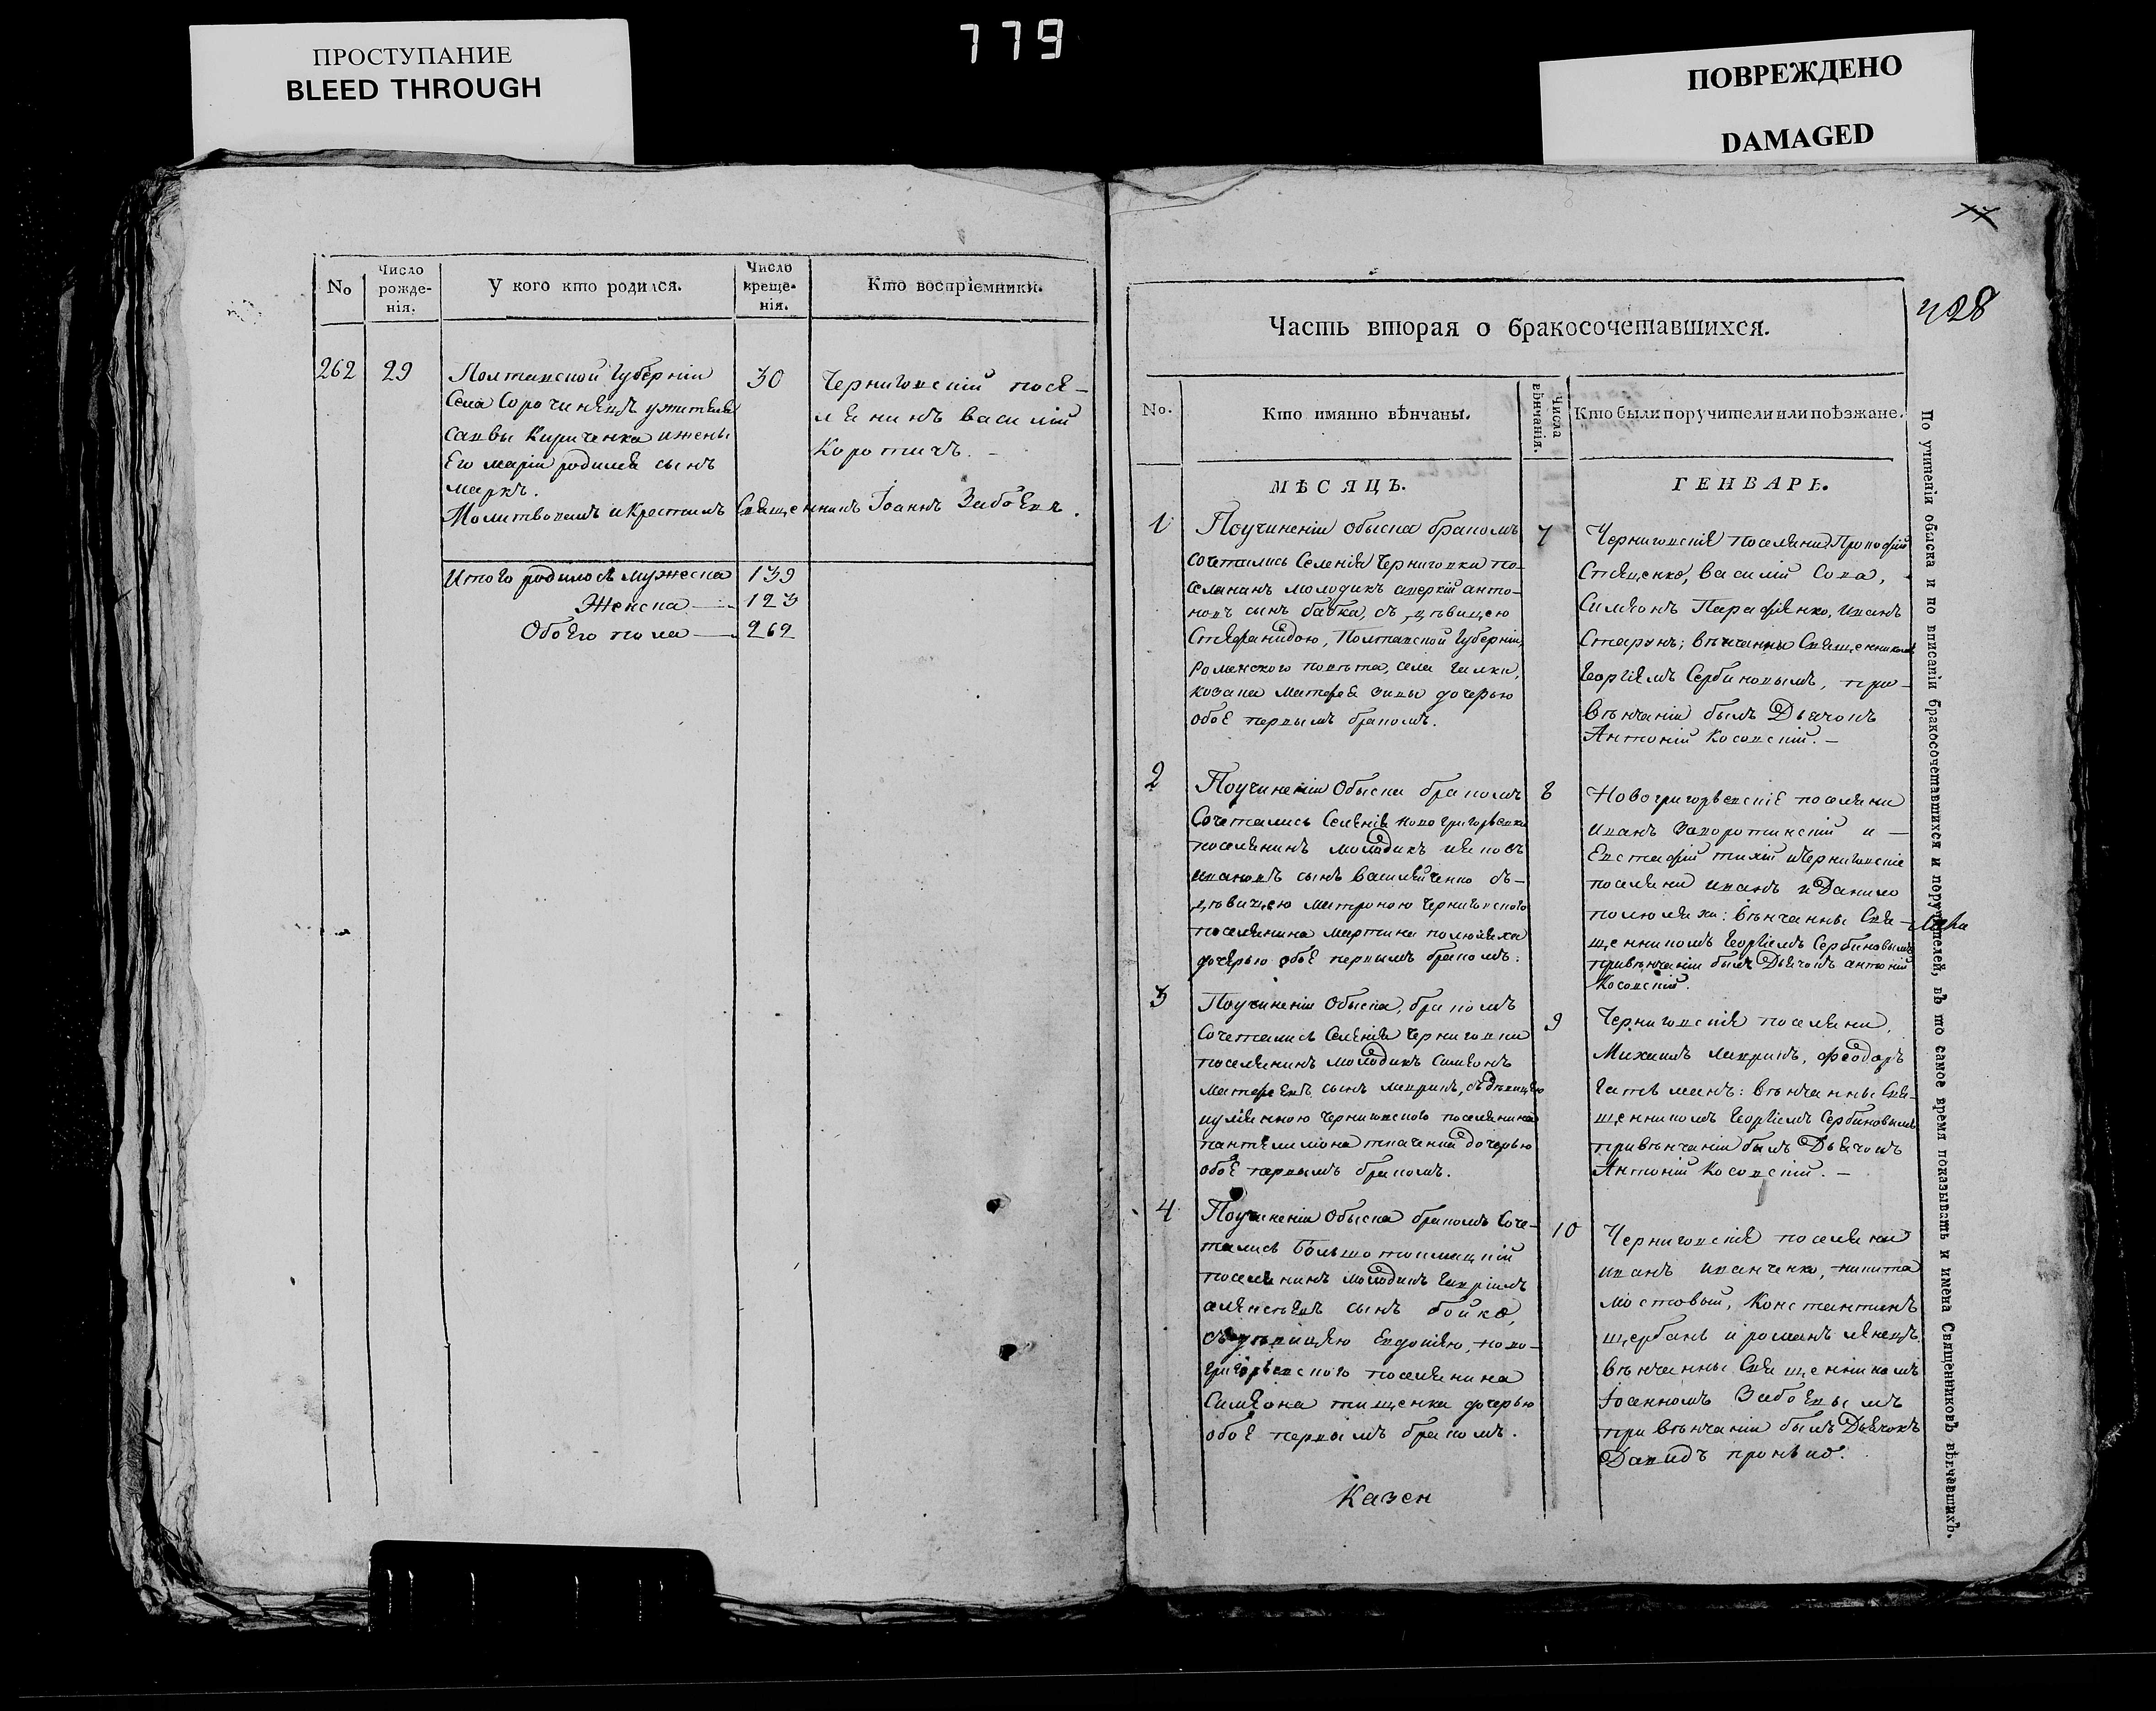 ПРОСТУПАНИЕ
BLEED THROUGH
779
ПОВРЕЖДЕНО
DAMAGED
No
Число рожде-нія.
У кого кто родился.
Число креще-нія.
Кто воспріемники.
262
29
Полтавской Губерніи
Села Сорочинецъ ужителя
Саввы Кириченка ижены
Его маріи родился сынъ
маркъ.
30
Черниговскій посе-
ленинъ василій
Коротичъ. -
Молитвовалъ икрестилъ Священникъ Іоаннъ Забоевъ.
Итого родилось мужеска 139
Женска 123
Обоего пола 262
428
Часть вторая о бракосочетавшихся.
No.
Кто имянно вѣнчаны.
Числа вѣнчанія.
Кто были поручители или поѣзжане.
МѢСЯЦЪ.
ГЕНВАРЬ.
1
Поучиненіи обыска бракомъ
сочетались Селенія Черниговки по-
селянинъ молодикъ аверкій анто-
новъ сынъ бабка, съ дѣвицею
Стефанидою, Полтавской Губерніи,
Роменского повѣта, села
козака матфея зины дочерью
обое первымъ бракомъ.
7
Черниговскіе поселяни Прокофій
Спященко, василій Сова,
Симеонъ Парафіенко, иванъ
Старунъ; вѣнчанны Священникомъ
Георгіемъ Сербиновымъ, при-
вѣнчаніи былъ Дьячокъ
Антоній Косовскій. -
2
Поучиненіи Обыска бракомъ
Сочетались Селенія новогригорьевки
поселянинъ молодикъ яковъ
ивановъ сынъ василенко съ-
дѣвицею матроною Черниговского
поселянина мартина полюляха
дочерью обое первымъ бракомъ:
8
Новогригорьевскіе поселяни
иванъ Заворотинскій и -
Евстафій тихій ичерниговскіе
поселяни иванъ и Данило
полюляхи: вѣнчанны Свя-
щенникомъ Георгіемъ Сербиновымъ
привѣнчаніи былъ Дьячокъ антоній
Косовскій.
3
Поучиненіи Обыска, бракомъ
Сочетались Селенія Черниговки
поселянинъ молодикъ Симеонъ
матфеевъ сынъ лавринъ, съдѣвицею
иулиянною черниговского поселянина
пантелимона ткаченка дочерью
обое первымъ бракомъ.
9
Черниговскіе поселяни,
Михаилъ лавринъ, феодоръ
Гатьманъ: вѣнчанны Свя-
щенникомъ Георгіемъ Сербиновымъ
привѣнчаніи былъ Дьячокъ
Антоній Косовскій. -
4
Поучиненіи Обыска бракомъ Соче-
тались большотокмацкій
поселянинъ молодикъ Гавріилъ
алексѣевъ сынъ бойко,
съ дѣвицею Евдокіею, ново-
григорьевского поселянина
Симеона тищенка дочерью
обое первымъ бракомъ.
10
Черниговскіе поселяни
иванъ иванченко, никита
мостовый, Константинъ
щербань и романъ ленецъ
вѣнчанны Священникомъ
Іоанномъ Забоевымъ
при вѣнчаніи былъ Дьячокъ
Давидъ
Казен
По учиненіи обыска и по вписаніи бракосочетавшихся и поручителей, въ то самое время показывать и имена Священниковъ вѣнчавшихъ.